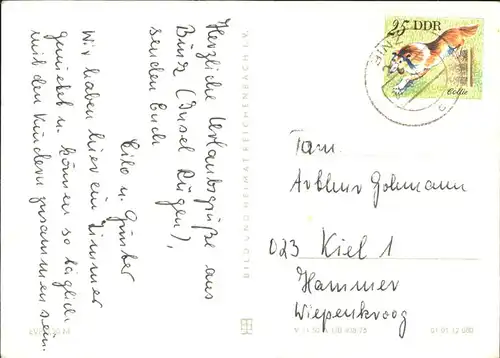 Herzliche Urlaubsgrüße aus
Binz (Insel Rügen),
senden Euch
Cilo u. Günter
Wir haben hier ein Zimmer
gemietet u. können so täglich
mit den Kindern zusammen sein.
BILD UND HEIMAT REICHENBACH I. V.
25 DDR
Collie
BINZ
Fam.
Arthur Gohmann
023 Kiel 1
Hammer
Wiepenkroog
01 01 12 080